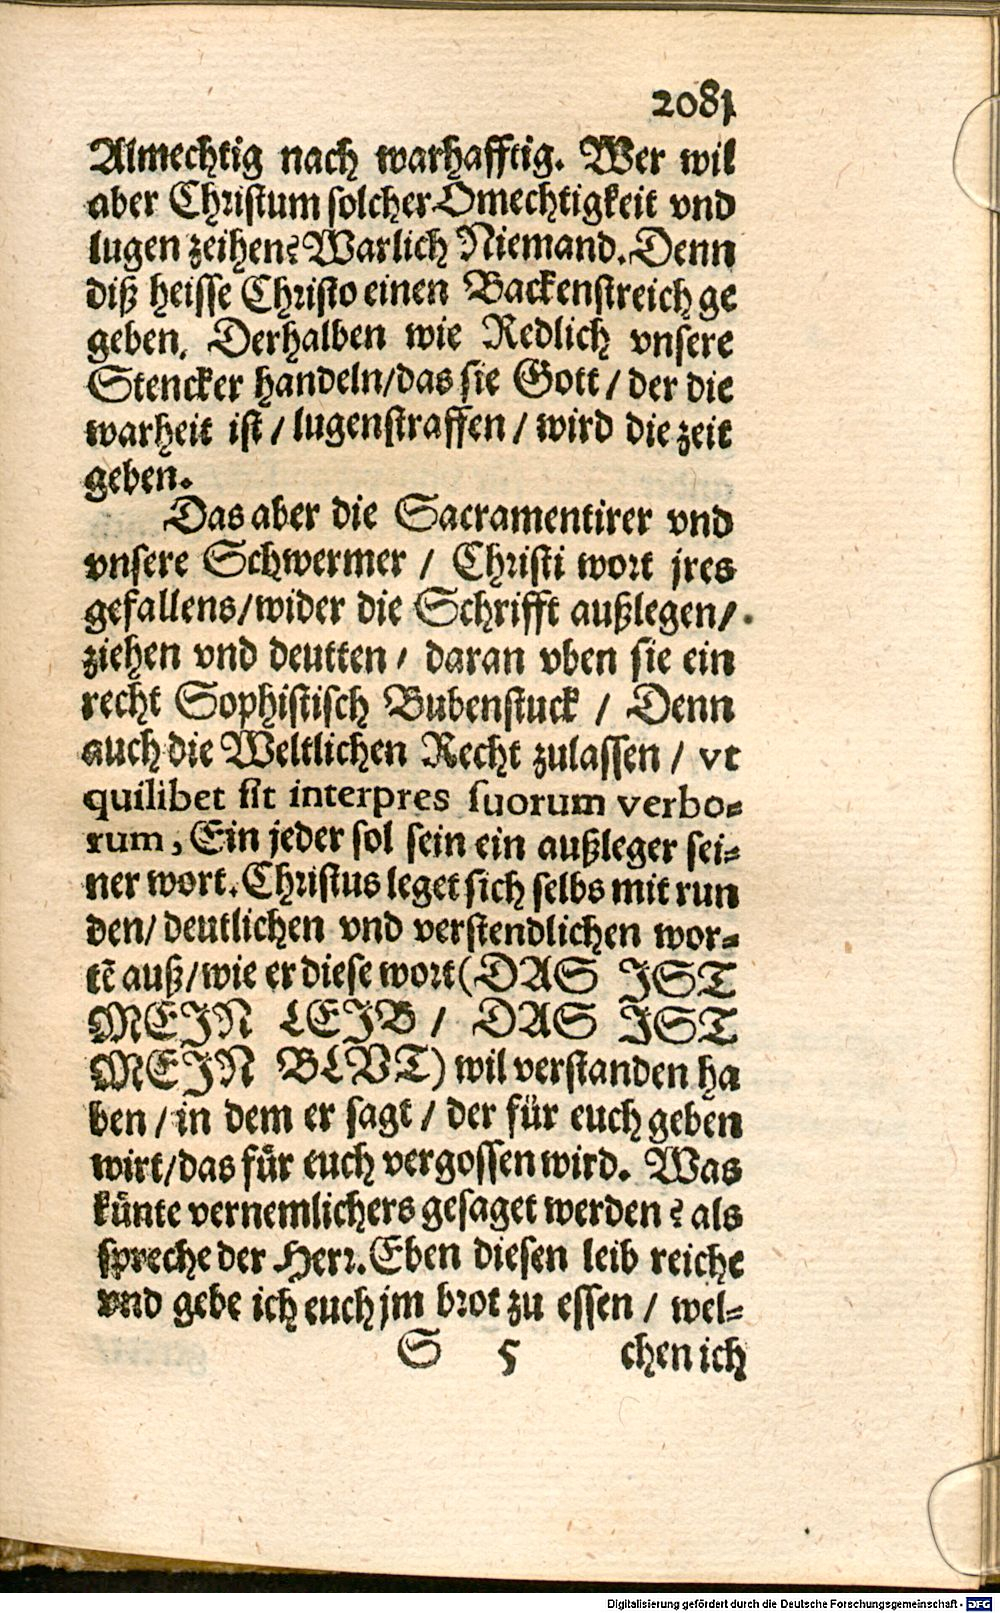 2081
Almechtig nach warhafftig. Wer wil
aber Christum solcher Omechtigkeit vnd
lugen zeihen? Warlich Niemand. Denn
diß heisse Christo einen Backenstreich ge
geben. Derhalben wie Redlich vnsere
Stencker handeln/das sie Gott / der die
warheit ist / lugenstraffen / wird die zeit
geben.
Das aber die Sacramentirer vnd
vnsere Schwermer / Christi wort jres
gefallens/wider die Schrifft außlegen/
ziehen vnd deutten / daran vben sie ein
recht Sophistisch Bubenstuck / Denn
auch die Weltlichen Recht zulassen / vt
quilibet sit interpres suorum verbo-
rum, Ein jeder sol sein ein außleger sei-
ner wort. Christus leget sich selbs mit run
den/ deutlichen vnd verstendlichen wor-
tē auß/wie er diese wort (DAS IST
MEIN LEIB / DAS IST
MEIN BLVT) wil verstanden ha
ben / in dem er sagt / der für euch geben
wirt/das für euch vergossen wird. Was
künte vernemlichers gesaget werden? als
spreche der Herr. Eben diesen leib reiche
vnd gebe ich euch jm brot zu essen / wel-
S 5 chen ich
Digitalisierung gefördert durch die Deutsche Forschungsgemeinschaft - DFG